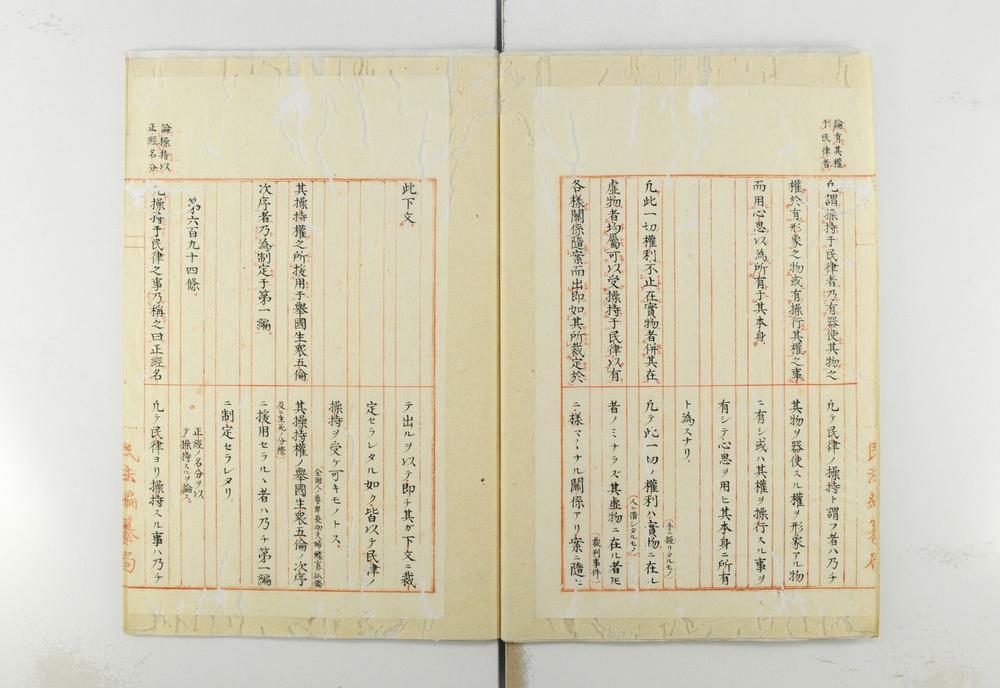 論有其權
于民律者
凡謂操持于民律者乃有器使其物之
權於有形象之物或有操行其權之事
而用心思以為所有于其本身
凡此一切權利不止在實物者併其在
虛物者均屬可以受操持于民律以有
各樣關係隨案而出即如其所裁定於
凡テ民律ノ操持ト謂フ者ハ乃チ
其物ヲ器使スル權ヲ形象アル物
ニ有シ或ハ其權ヲ操行スル事ヲ
有シテ心思ヲ用ヒ其本身ニ所有
ト為スナリ
(手ニ握リタルモノ)
凡テ此一切ノ權利ハ實物ニ在ル
(人ニ借シタルモノ)
者ノミナラズ其虛物ニ在ル者モ
(裁判事件)
様々トナル關係アリ案ニ隨ヒ
論操持以
正經名分
此下文
其操持權之所援用于舉國生衆五倫
次序者乃為制定于第一編
第六百九十四條
凡操持于民律之事乃稱之曰正經名
テ出ルヲ以テ即チ其ガ下文ニ裁
定セラレタル如ク皆以テ民律ノ
操持ヲ受ケ可キモノトス
全國人ノ尊卑長幼夫婦鰥寡孤獨
其操持權ノ舉國生衆五倫ノ次序
及ヒ生死ノ分際
ニ援用セラルヽ者ハ乃チ第一編
ニ制定セラレタリ
正經ノ名分ヲ以
テ操持スルヲ論ス
凡テ民律ヨリ操持スル事ハ乃チ
民法編纂局